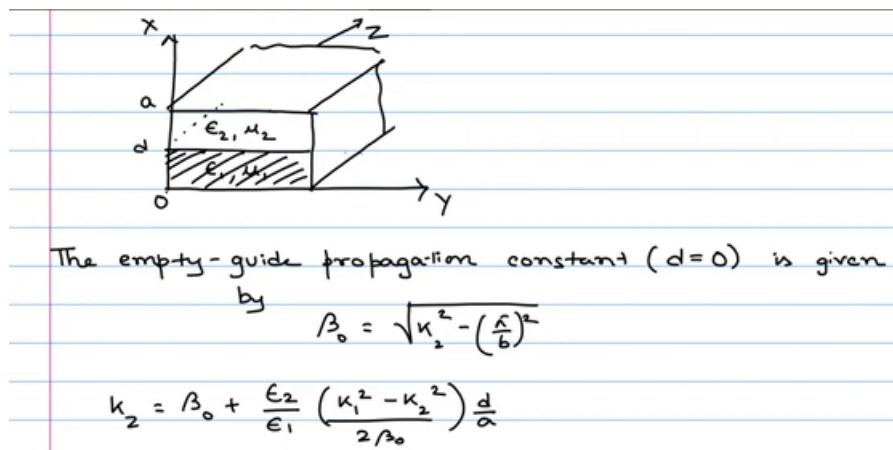 X
Z
a
ϵ₂, μ₂
d
ϵ₁, μ₁
O
Y
The empty-guide propagation constant (d=0) is given
by
β₀ = √(K₂² - (π/b)²)
k_z = β₀ + ϵ₂/ϵ₁ ((K₁² - K₂²)/2β₀) d/a